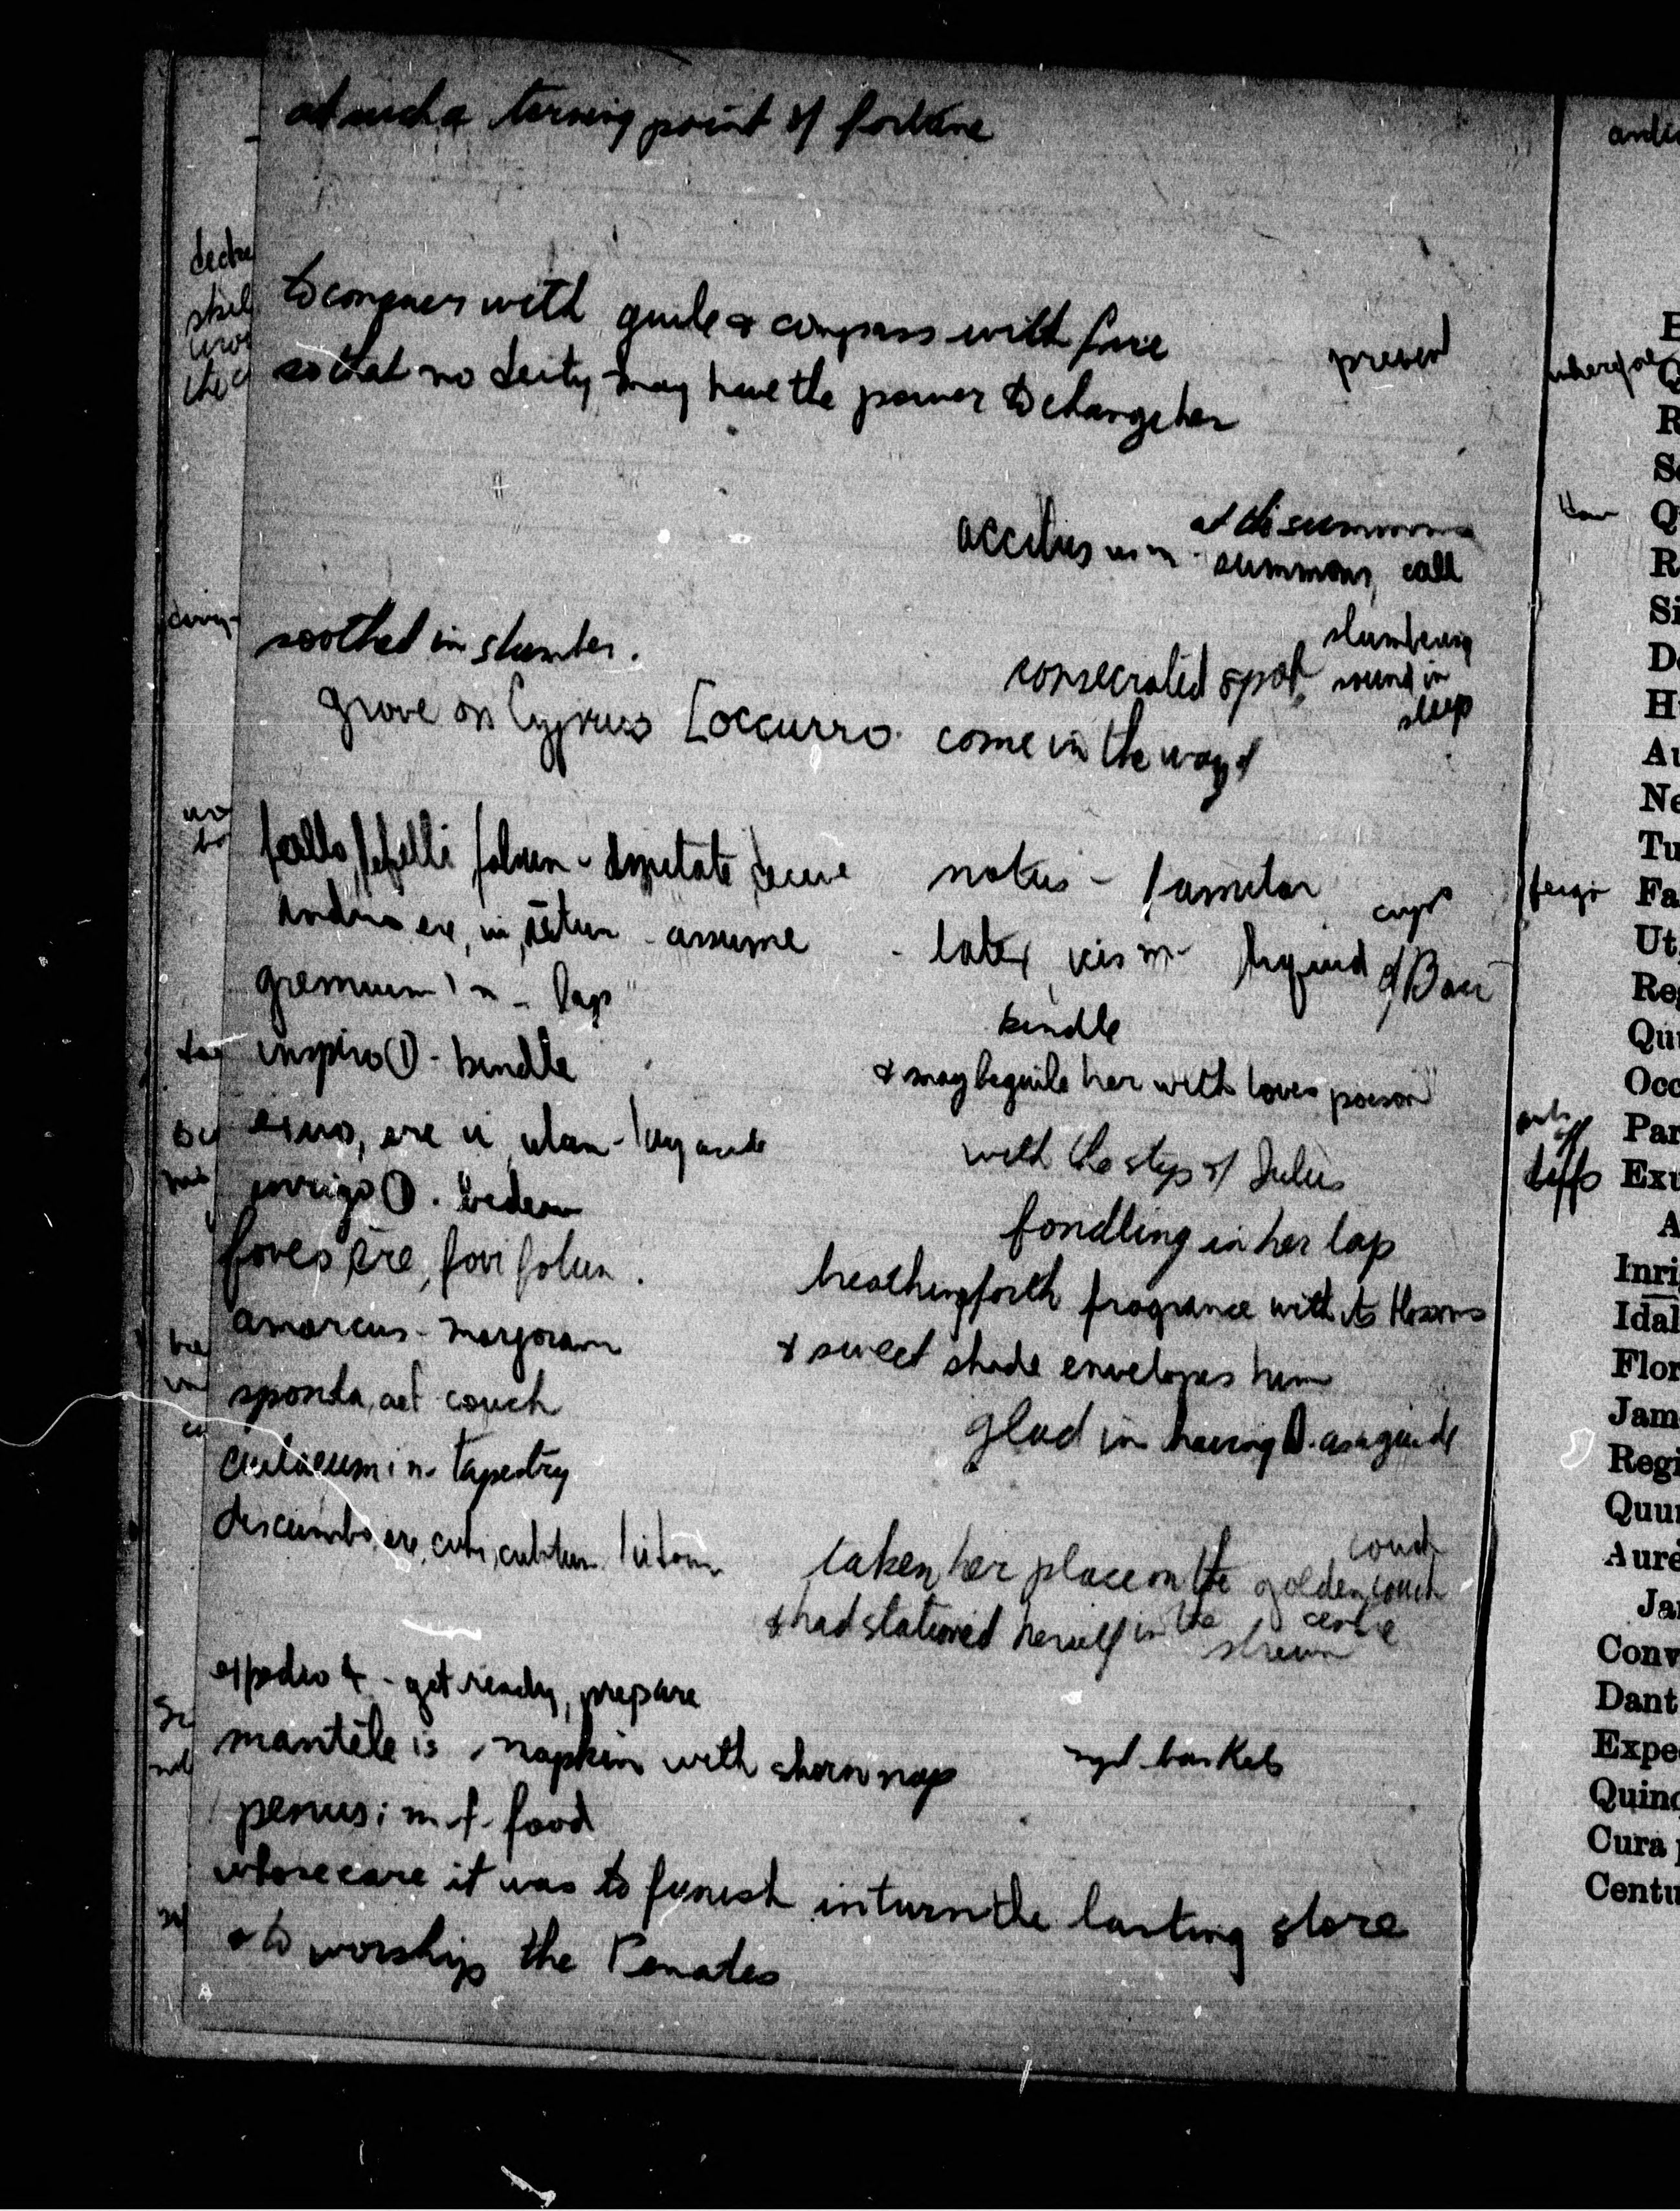 at such a turning point of fortune
to conquer with guile & compass with fire
present
so that no deity may have the power to change her
at the summons
accitus us m - summons, call
soothed in slumber.
consecrated spot,
slumbering
sound in
sleep
grove on Cyprus [occurro. come in the way of
fallo, fefelli falsum - imitate deceive
notus - familiar
induo ere, ui, utum - assume
latex icis m - liquid of Bacc
cups
gremium i n - lap
kindle
inspiro ① - kindle
& may beguile her with loves poison
exuo, ere ui utum - lay aside
with the step of Julus
inrigo ① - bedew
fondling in her lap
foveo, ēre, fovi fotum.
breathing forth fragrance with its blossoms
amarcus - marjoram
& sweet shade envelopes him
sponda, ae f couch
glad in having A. as a guide
aulaeum i n - tapestry
discumbo, ere, cubi, cubitum
couch
taken her place on the golden couch
& had stationed herself in the centre
strewn
expedio 4 - get ready, prepare
mantēle is napkin with shorn nap
baskets
penus i m f - food
whose care it was to furnish in turn the lasting store
& to worship the Penates
decre
skil
the c
wherefore
how
feign
puts
off
doffs
Q
R
Q
R
Si
De
H
Au
Ne
Tu
Fa
Ut
Reg
Qu
Occ
Par
Exu
A
Inri
Idal
Flor
Jam
Regi
Quu
Aure
Ja
Conv
Dant
Expe
Quinc
Cura
Centu